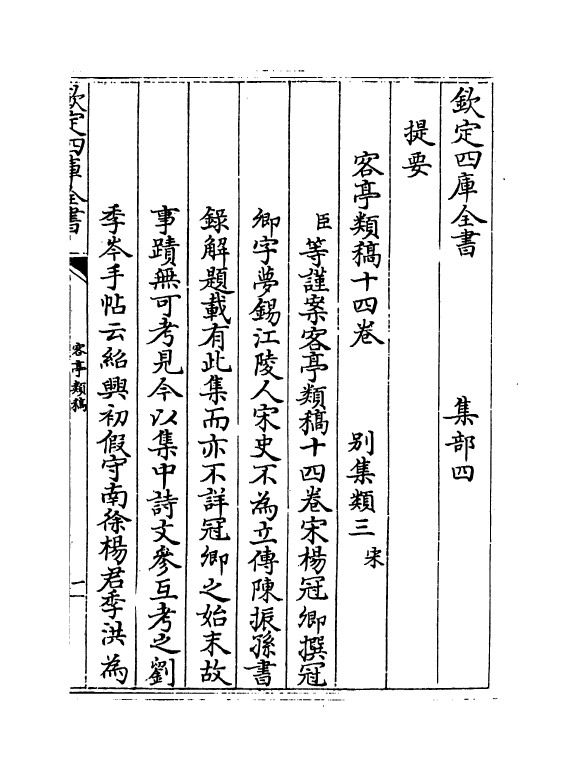 欽定四庫全書　　　集部四
提要
客亭類稿十四卷　　別集類三宋
臣等謹案客亭類稿十四卷宋楊冠卿撰冠
卿字夢錫江陵人宋史不為立傳陳振孫書
錄解題載有此集而亦不詳冠卿之始末故
事蹟無可考見今以集中詩文參互考之劉
季岑手帖云紹興初假守南徐楊君季洪為
欽定四庫全書
客亭類稿
一